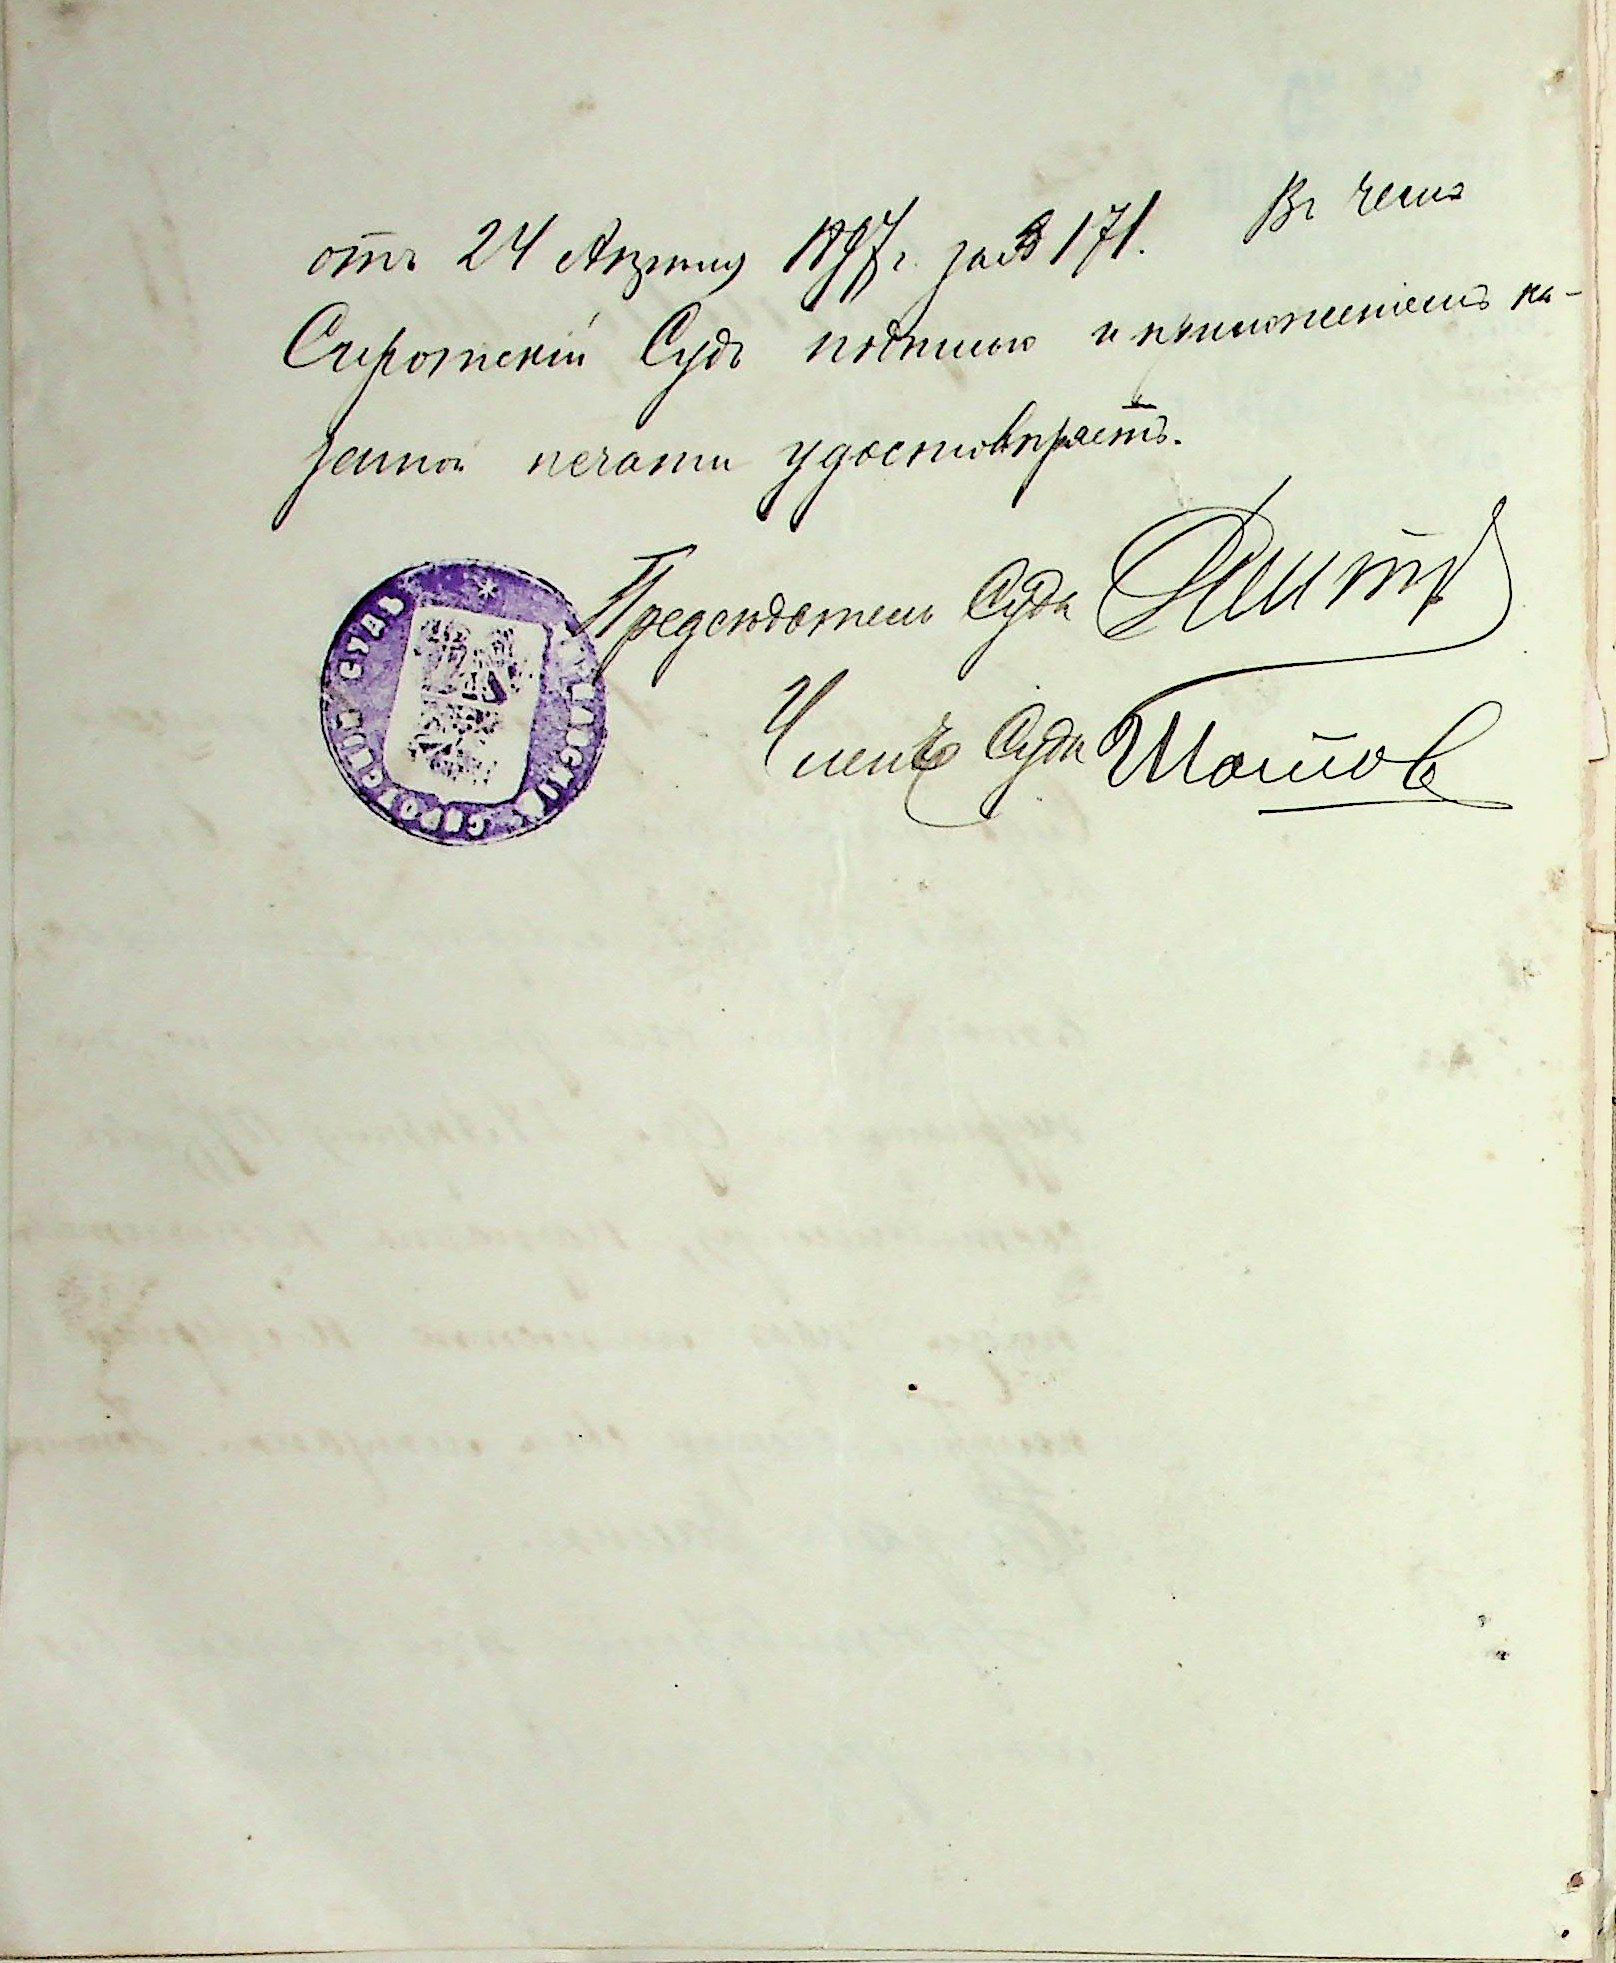 отъ 24 Апрѣля 1897 г. за № 171. Въ чемъ
Сиротскій Судъ подписью и приложеніемъ ка-
зенной печати удостовѣряетъ.
Предсѣдатель Суда
Членъ Суда Шатов
СИРОТСКІЙ СУДЪ